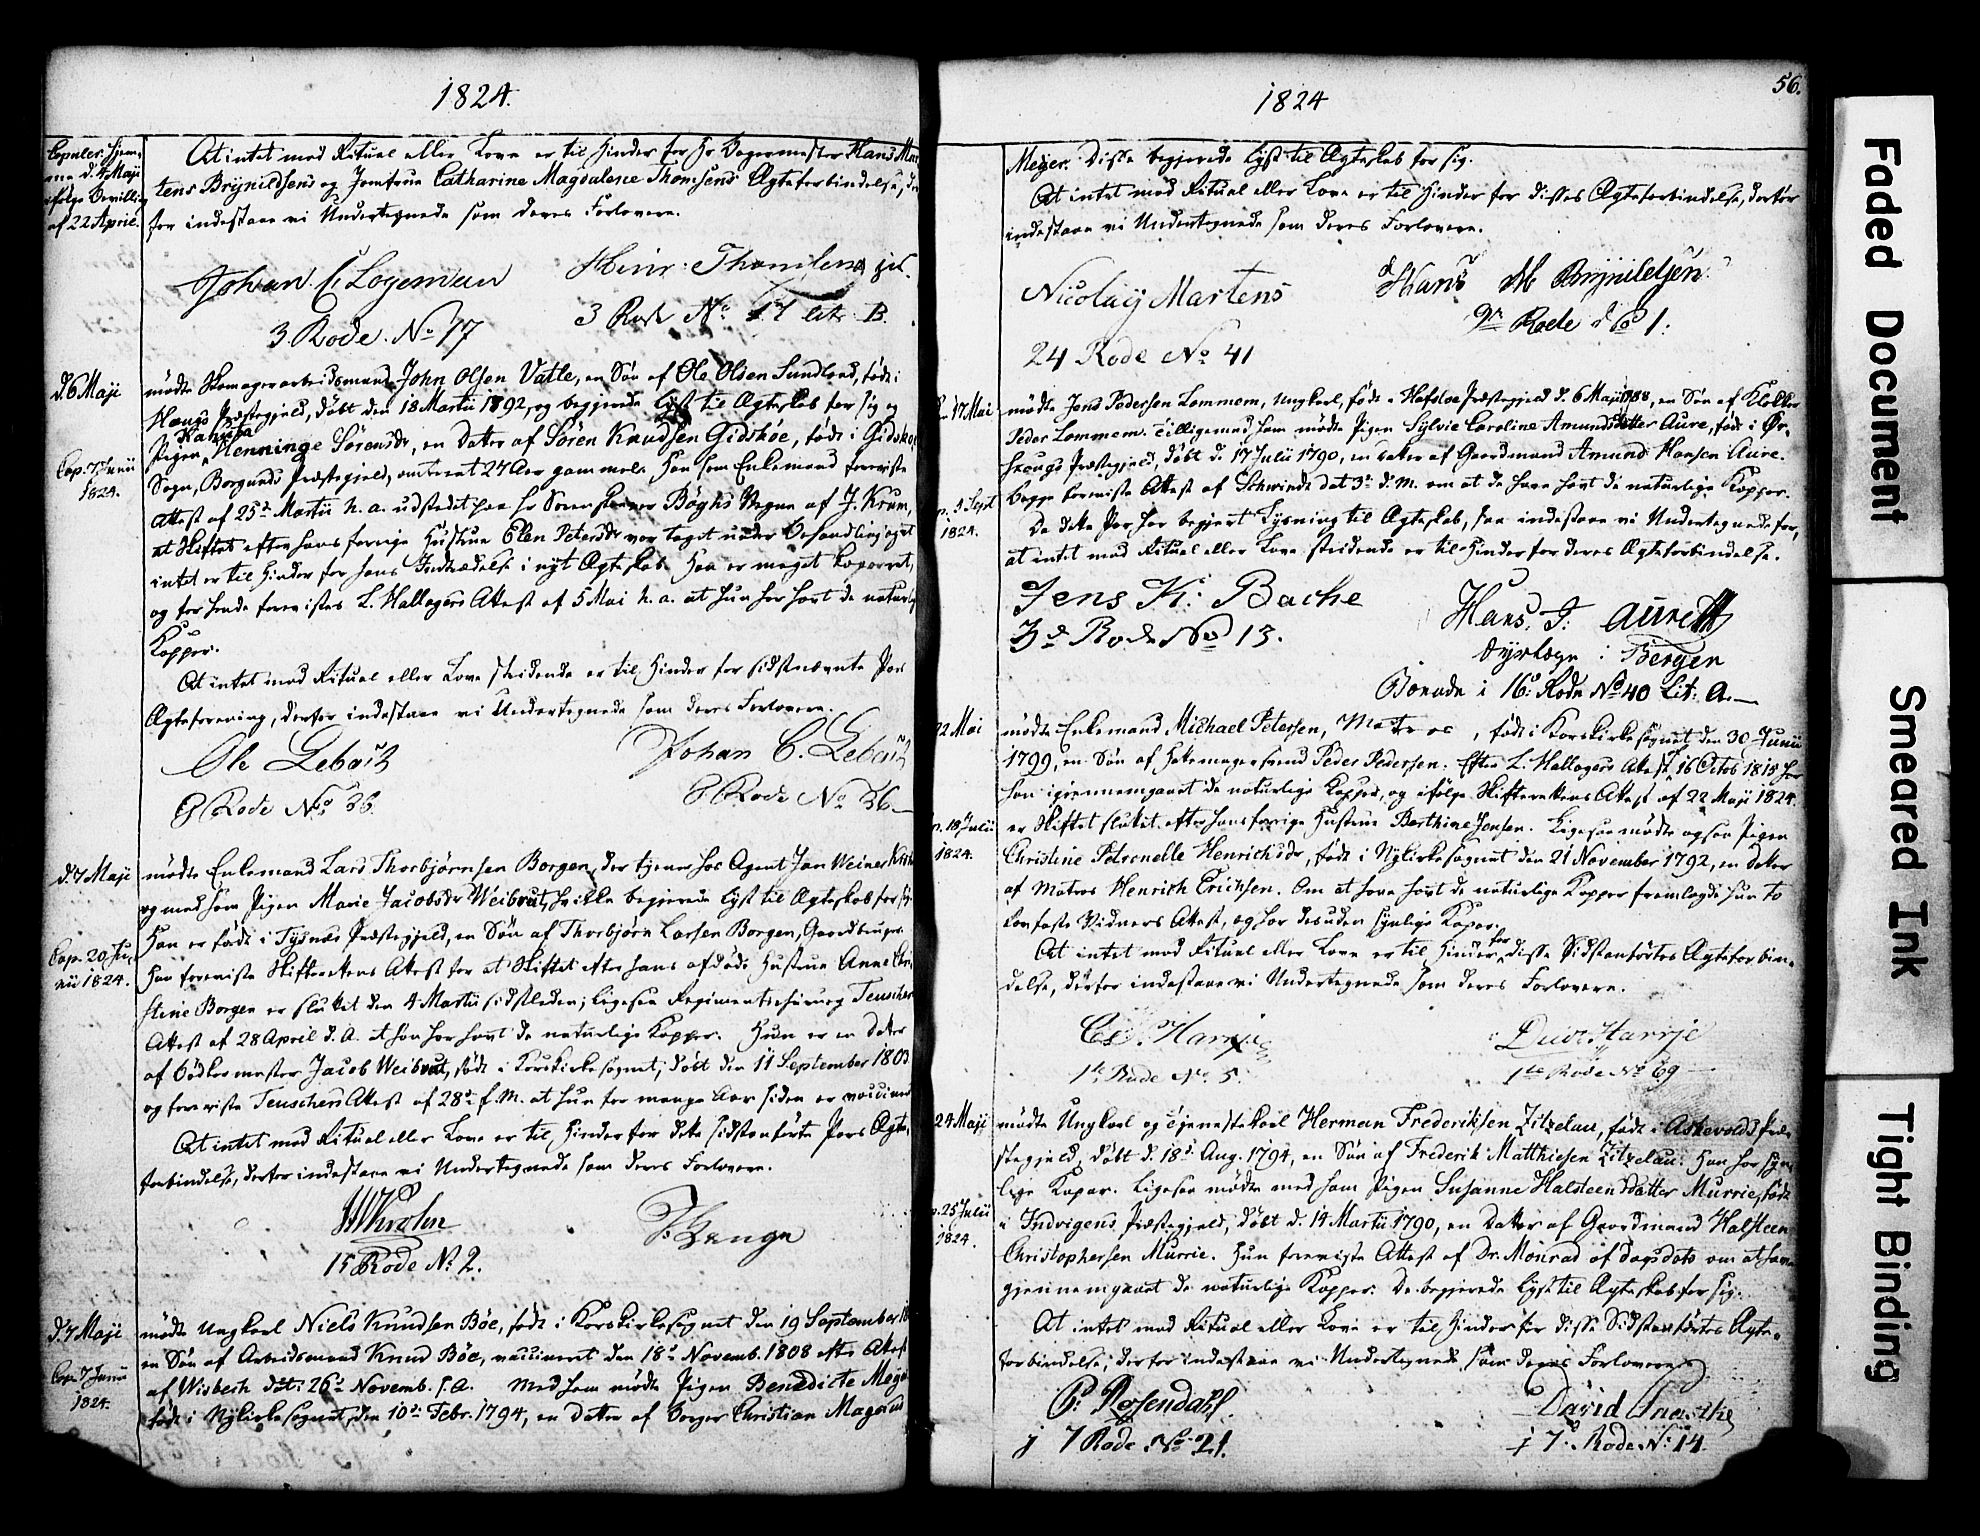 1824.
Copuler. hjem-
me d. 4 Maji
ifølge Bevilling
af 22 April.
At intet mod Ritual eller Love er til Hinder for Hr Bagermester Hans Mar
tens Brynildsens og Jomfrue Catharine Magdalene Thomsens Ægteforbindelse, der
for indestaae vi Undertegnede som deres Forlovere.
Johan C Logeman
3 Rode No 17
Hinr: Thomsen
3 Rode No 17 litr B.
d. 6 Maji
mødte Skomagerarbeidsmand John Olsen Vatle, en Søn af Ole Olsen Sundland, født i
Hougs Præstegjeld, døbt den 18 Martii 1792, og begjerede Lyst til Ægteskab for sig og
Pigen Henninge Sørensdr, en Datter af Søren Knudsen Gidskøe, født i Gidskøe
Cop. 7 Junii
1824.
Sogn, Borgunds Præstegjeld, omtrent 27 Aar gammel. Han som Enkemand foreviste
Attest af 25de Martii h. a. udstedt paa Hr Sorenskriver Bøghs Vegne af J. Krum,
at Skiftet efter hans forrige Hustrue Elen Petersdr var taget under Behandling og at
intet er til Hinder for hans Indtrædelse i nyt Ægteskab. Han er meget koparret,
og for hende forevistes L. Hallagers Attest af 5 Mai h. a. at hun har havt de naturlige
Kopper.
At intet mod Ritual eller Love stridende er til Hinder for sidstnævnte Pars
Ægteforening, derfor indestaae vi Undertegnede som deres Forlovere.
Ole Lebach
8 Rode No 36.
Johan C. Lebach
8 Rode No 36
d. 7 Maji
mødte Enkemand Lars Thorbjørnsen Borgen, der tjener hos Agent Jan Weiner
og med ham Pigen Marie Jacobsdr Weibrut, hvilke begjerede Lyst til Ægteskab for sig.
Han er født i Tysnæs Præstegjeld, en Søn af Thorbjørn Larsen Borgen, Gaardbruger.
Cop. 20 Ju-
nii 1824.
Han foreviste Skifterettens Attest for at Skiftet efter hans afdøde Hustrue Anne Chri
stine Borgen er sluttet den 4 Martii sidstleden; ligesaa Regimentschirurg Teuschers
Attest af 28 April d. A. at han har havt de naturlige Kopper. Hun er en Datter
af Bødkermester Jacob Weibrut, født i Korskirkesognet, døbt den 11 September 1803
og foreviste Teuschers Attest af 28de f. M. at hun for mange Aar siden er vaccineret.
At intet mod Ritual eller Love er til Hinder for dette sidstanførte Pars Ægte-
forbindelse, derfor indestaae vi Undertegnede som deres Forlovere.
15 Rode No 2.
d. 7 Maji
mødte Ungkarl Niels Knudsen Böe, født i Korskirkesognet den 19 September
en Søn af Arbeidsmand Knud Böe, vaccineret den 18de Novemb. 1808 efter Attest
Cop. 7 Junii
1824.
af Wisbech dat: 26de Novemb. s. A. Med ham mødte Pigen Benedicte Meyer
født i Nykirkesognet, den 10de Febr. 1794, en Datter af Borger Christian Magnus
1824
56.
Meyer. Disse begjerede Lyst til Ægteskab for sig.
At intet mod Ritual eller Love er til Hinder for disses Ægteforbindelse, derfor
indestaae vi Undertegnede som deres Forlovere.
Nicolay Martens
24 Rode No 41
Hans M Brynildsen
9de Rode No 1.
17 Mai
mødte Jens Pedersen Lommem, Ungkarl, født i Hafsloe Præstegjeld d. 6 Maji 1788, en Søn af Klokker
Peder Lommem. Tilligemed ham mødte Pigen Sylvie Caroline Amundsdatter Aure, født i Ør-
skougs Præstegjeld, døbt d. 17 Julii 1790, en Datter af Gaardmand Amund Hansen Aure.
Begge foreviste Attest af Schwindt dat 3de d. M. om at de have havt de naturlige Kopper.
p. 5 Sept
1824.
Da dette Par har begjert Lysning til Ægteskab, saa indestaae vi Undertegnede for,
at intet mod Ritual eller Love stridende er til Hinder for deres Ægteforbindelse.
Jens K: Bache
3de Rode No 13.
Hans J: Aurett
Dyrlæge i Bergen
Boende i 16de Rode No 40 Lit: A.
22 Mai
mødte Enkemand Michael Petersen, Matros, født i Korskirkesognet den 30 Junii
1799, en Søn af Hattemagersvend Peder Pedersen. Efter L. Hallagers Attest 16 Octob 1815 har
han igjennemgaaet de naturlige Kopper, og ifølge Skifterettens Attest af 22 Maji 1824
p. 18 Julii
1824.
er Skiftet sluttet efter hans forrige Hustrue Berthine Jensen. Ligesaa mødte ogsaa Pigen
Christine Petronelle Henrichsdr, født i Nykirkesognet den 21 November 1792, en Datter
af Matros Henrich Erichsen. Om at have havt de naturlige Kopper fremlagde hun to
Vidners Attest, og har desuden synlige Kopar.
At intet mod Ritual eller Love er til Hinder for disse Sidstanførtes Ægteforbin-
delse, derfor indestaae vi Undertegnede som deres Forlovere.
Harrje
1te Rode No 5.
Harrje
1te Rode No 69
24 Maji
mødte Ungkarl og Tjenestekarl Herman Frederiksen Zitzelau, født i Askevolds Præ-
stegjeld, døbt d. 18de Aug. 1794, en Søn af Frederik Matthiesen Zitzelau. Han har syn-
lige Kopar. Ligesaa mødte med ham Pigen Susanne Halsteensdatter Murrie, født
p. 25 Julii
1824.
i Indvigens Præstegjeld, døbt d. 14 Martii 1790, en Datter af Gaardmand Halsteen
Christophersen Murrie. Hun foreviste Attest af Dr. Monrad af Dags dato om at have
gjennemgaaet de naturlige Kopper. De begjerede Lyst til Ægteskab for sig.
At intet mod Ritual eller Love er til Hinder for disse Sidstanførtes Ægte-
forbindelse, derfor indestaae vi Undertegnede som deres Forlovere.
P. Rosendahl
i 7 Rode No 21.
David
i 7de Rode No 14
Faded Document
Smeared Ink
Tight Binding